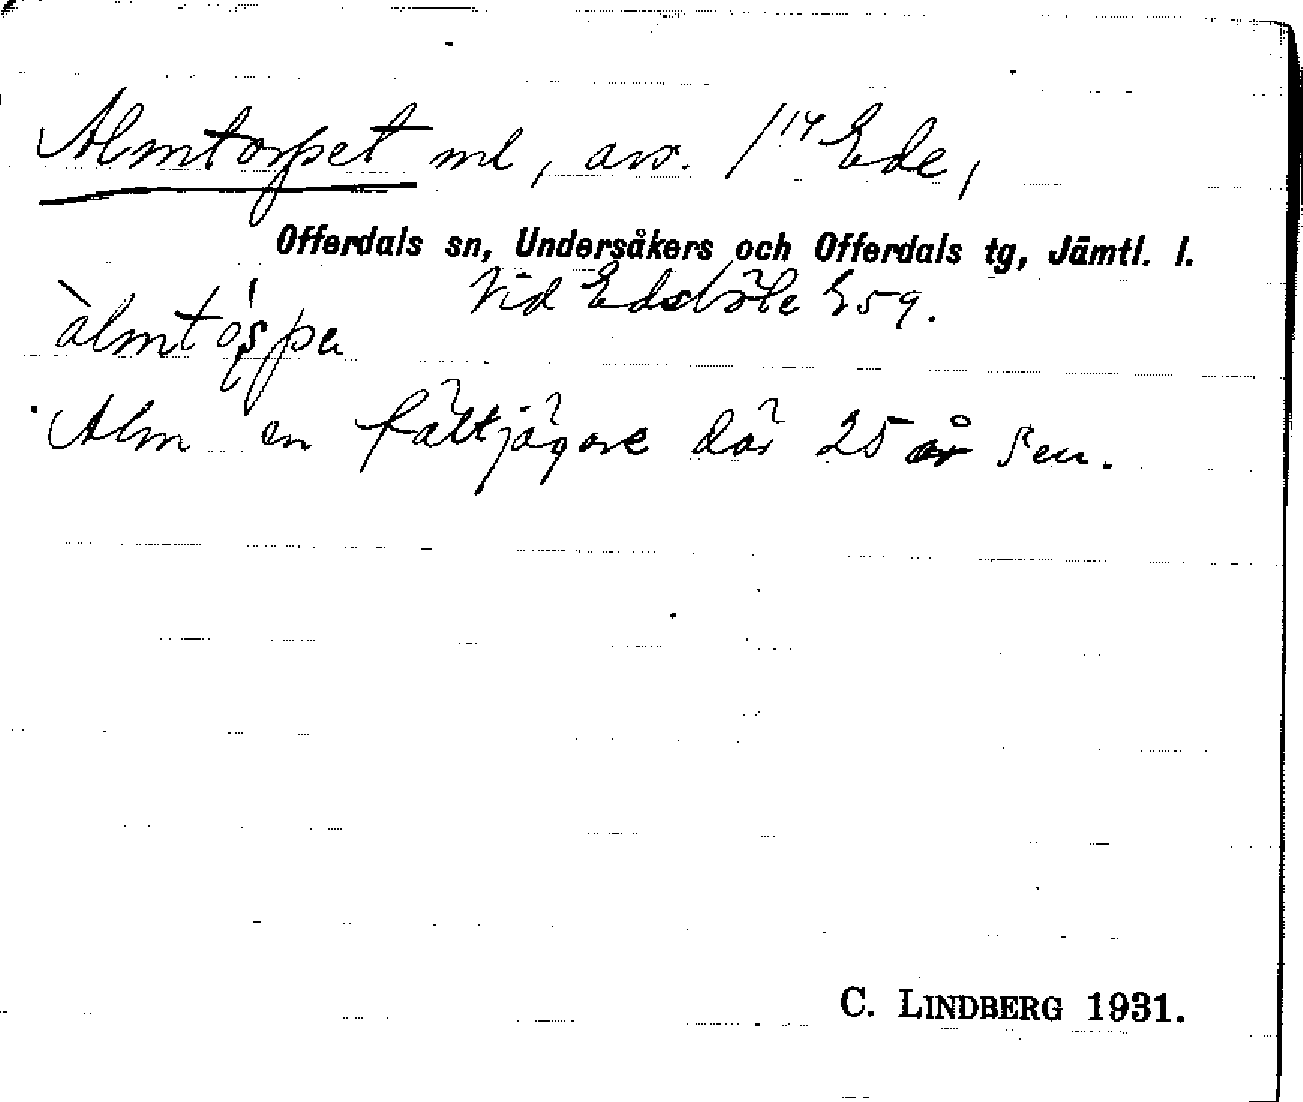 Almtorpet ml, avs. 1/14 Ede,
Offerdals sn, Undersåkers och Offerdals tg, Jämtl. l.
Vid Edsböle 59.
àlmtó̀špa
Alm en fältjägare där 25 år sen.
C. LINDBERG 1931.